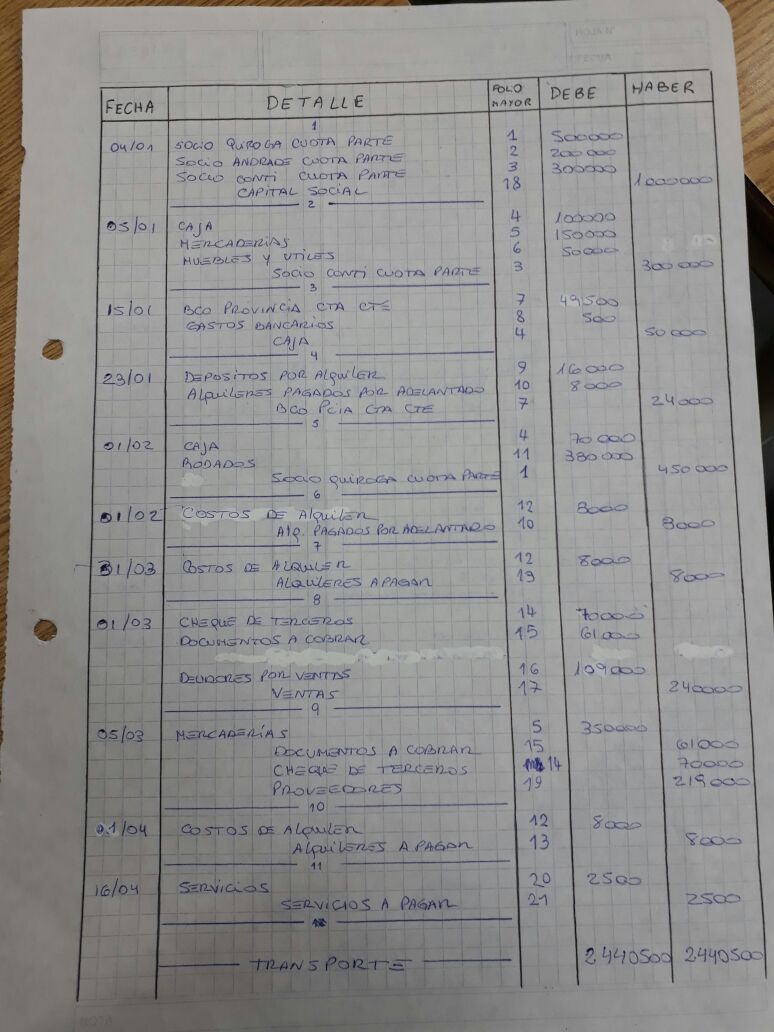 FECHA DETALLE FOLIO MAYOR DEBE HABER
1
04/01 SOCIO QUIROGA CUOTA PARTE 1 500000
SOCIO ANDRADE CUOTA PARTE 2 200000
SOCIO CONTI CUOTA PARTE 3 300000
CAPITAL SOCIAL 18 1000000
2
05/01 CAJA 4 100000
MERCADERÍAS 5 150000
MUEBLES Y UTILES 6 50000
SOCIO CONTI CUOTA PARTE 3 300000
3
15/01 BCO PROVINCIA CTA CTE 7 49,500
GASTOS BANCARIOS 8 500
CAJA 4 50000
4
23/01 DEPOSITOS POR AlquilER 9 16000
AlquilERES PAGADOS POR ADELANTADO 10 8000
BCO PCIA CTA CTE 7 24000
5
01/02 CAJA 4 70000
RODADOS 11 380000
SOCIO QUIROGA CUOTA PARTE 1 450000
6
01/02 COSTOS DE AlquilER 12 8000
Alq. PAGADOS POR ADELANTADO 10 8000
7
31/03 COSTOS DE AlquilER 12 8000
ALQUILERES A PAGAR 13 8000
8
01/03 CHEQUE DE TERCEROS 14 70000
DOCUMENTOS A COBRAR 15 61000
DEUDORES POR VENTAS 16 109000
VENTAS 17 240000
9
05/03 MERCADERÍAS 5 350000
DOCUMENTOS A COBRAR 15 61000
CHEQUE DE TERCEROS 14 70000
PROVEEDORES 19 219000
10
01/04 COSTOS DE AlquilER 12 8000
AlquilERES A PAGAR 13 8000
11
16/04 SERVICIOS 20 2500
SERVICIOS A PAGAR 21 2500
TRANSPORTE 2440500 2440500